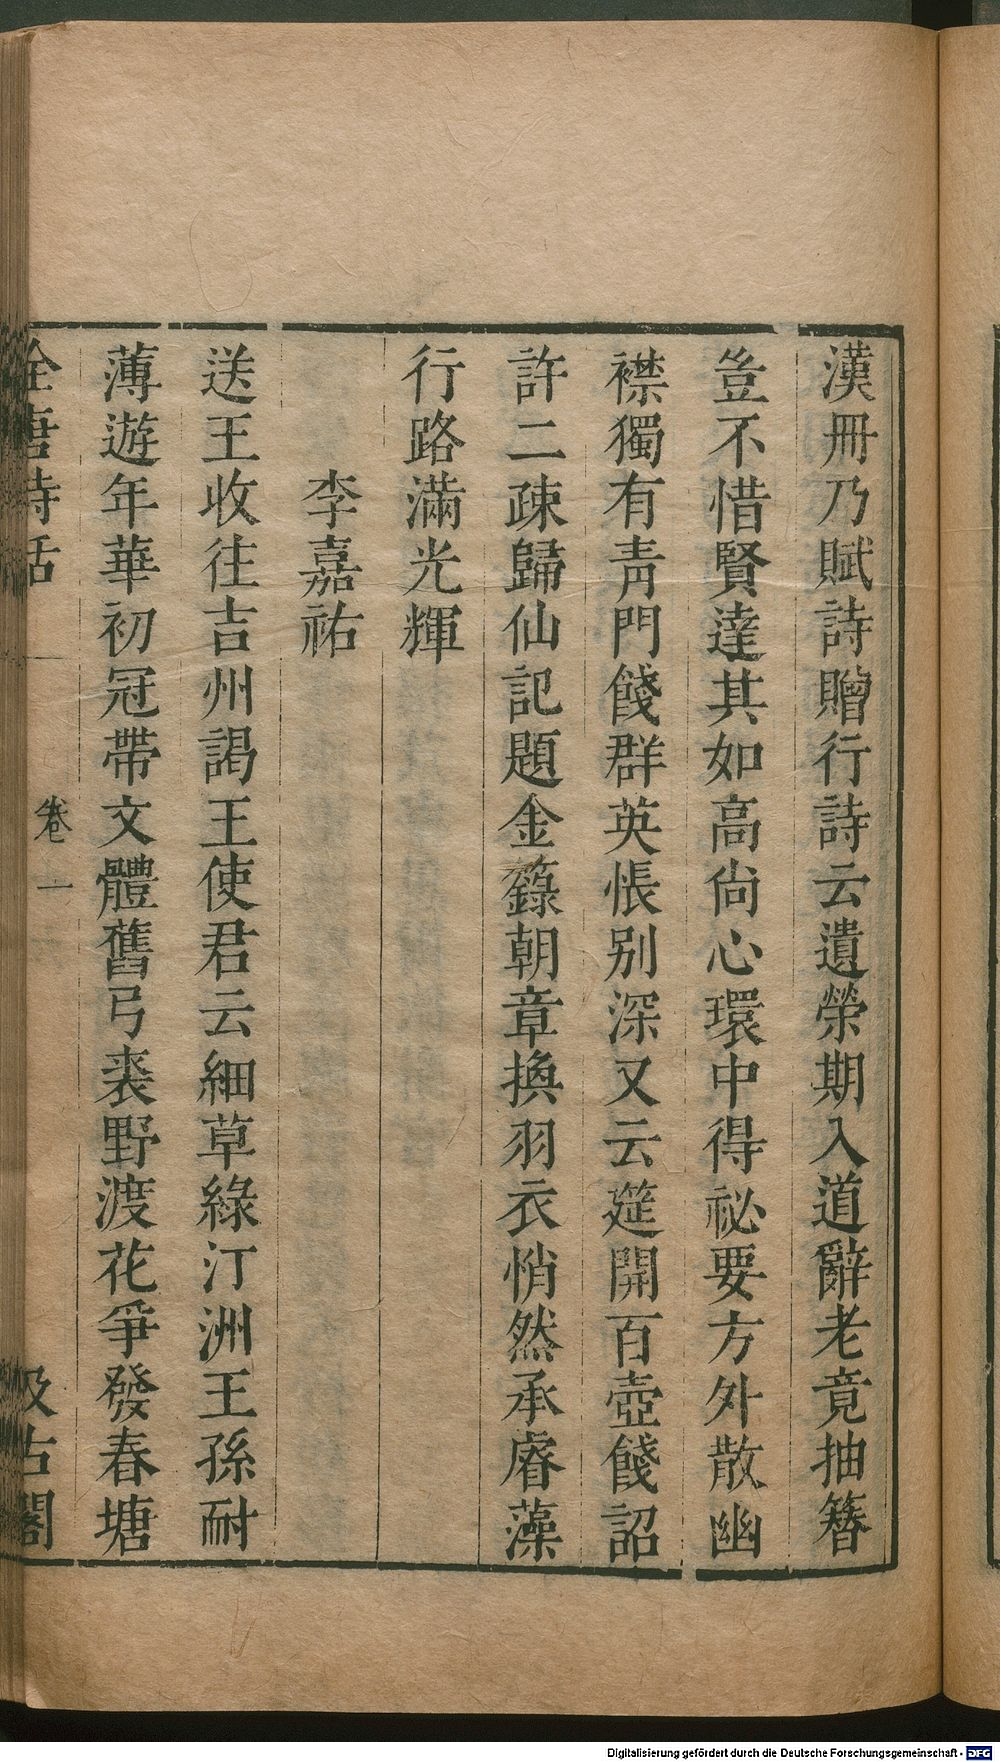 漢冊乃賦詩贈行詩云遺榮期入道辭老竟抽簪
豈不惜賢達其如高尙心環中得祕要方外散幽
襟獨有靑門餞群英悵别深又云筵開百壺餞詔
許二疎歸仙記題金籙朝章換羽衣悄然承睿藻
行路滿光輝
李嘉祐
送王收往吉州謁王使君云細草綠汀洲王孫耐
薄遊年華初冠帶文體舊弓裘野渡花爭發春塘
全唐詩話
卷一
汲古閣
Digitalisierung gefördert durch die Deutsche Forschungsgemeinschaft - DFG